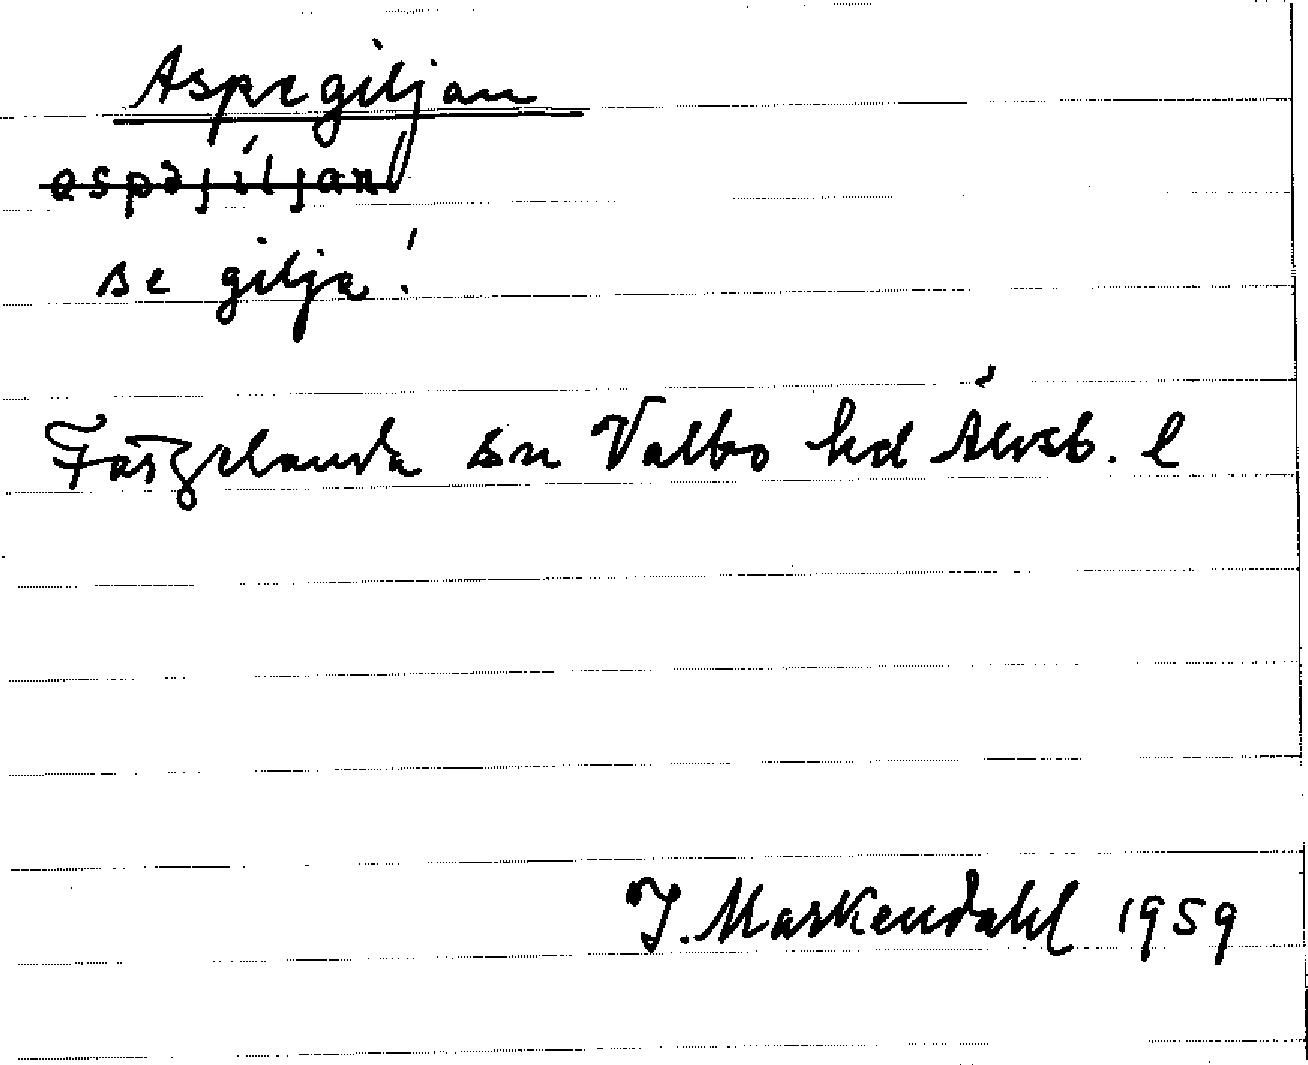 Aspegiljan
espəjíljan
se gilja!
Färgelanda sn Valbo hd Älvsb. l
J. Markendahl 1959